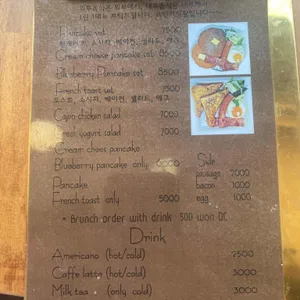 Pancake set 7500
Cream cheese pancake set 8500
Blueberry Pancake set 8500
French toast set 7500
토스트, 소시지, 베이컨, 샐러드, 에그
Cajun chicken salad 7000
Fresh yogurt salad 7000
Cream chees pancake
Blueberry pancake only 6000
Pancake
French toast only 5000
Side
sausage 2000
bacon 1000
egg 1000
* Brunch order with drink 500 won DC
Drink
Americano (hot/cold) 2500
Caffe latte (hot/cold) 3000
Milk tea (only cold) 3000